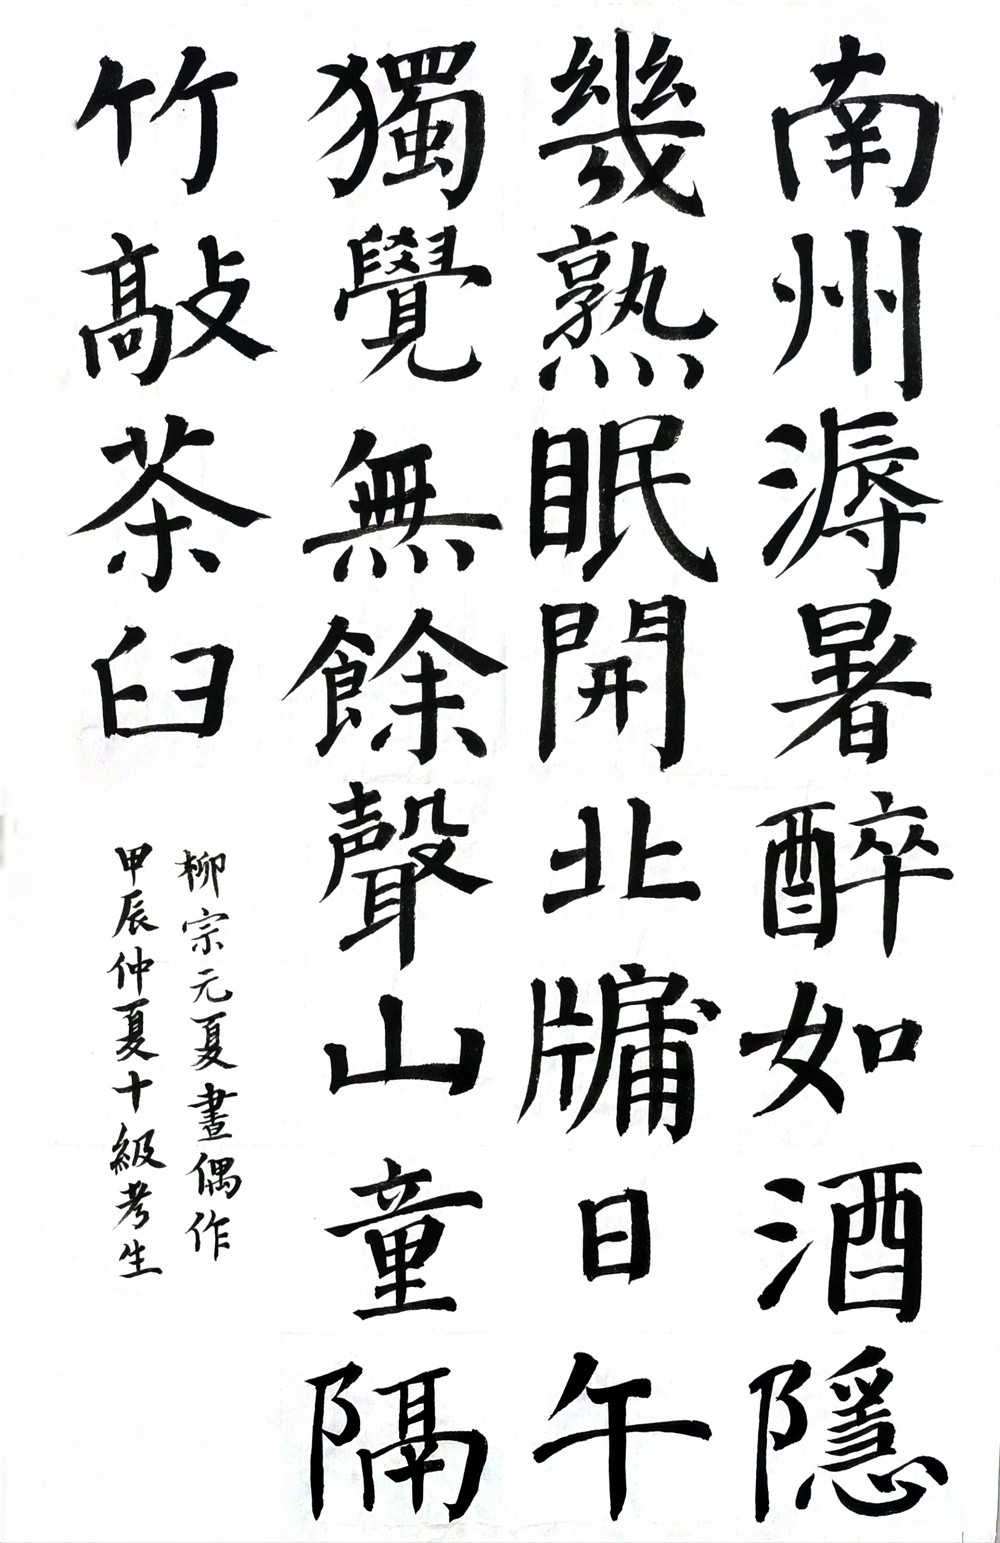 南州溽暑醉如酒隱
幾熟眠開北牖日午
獨覺無餘聲山童隔
竹敲茶臼
柳宗元夏晝偶作
甲辰仲夏十級考生